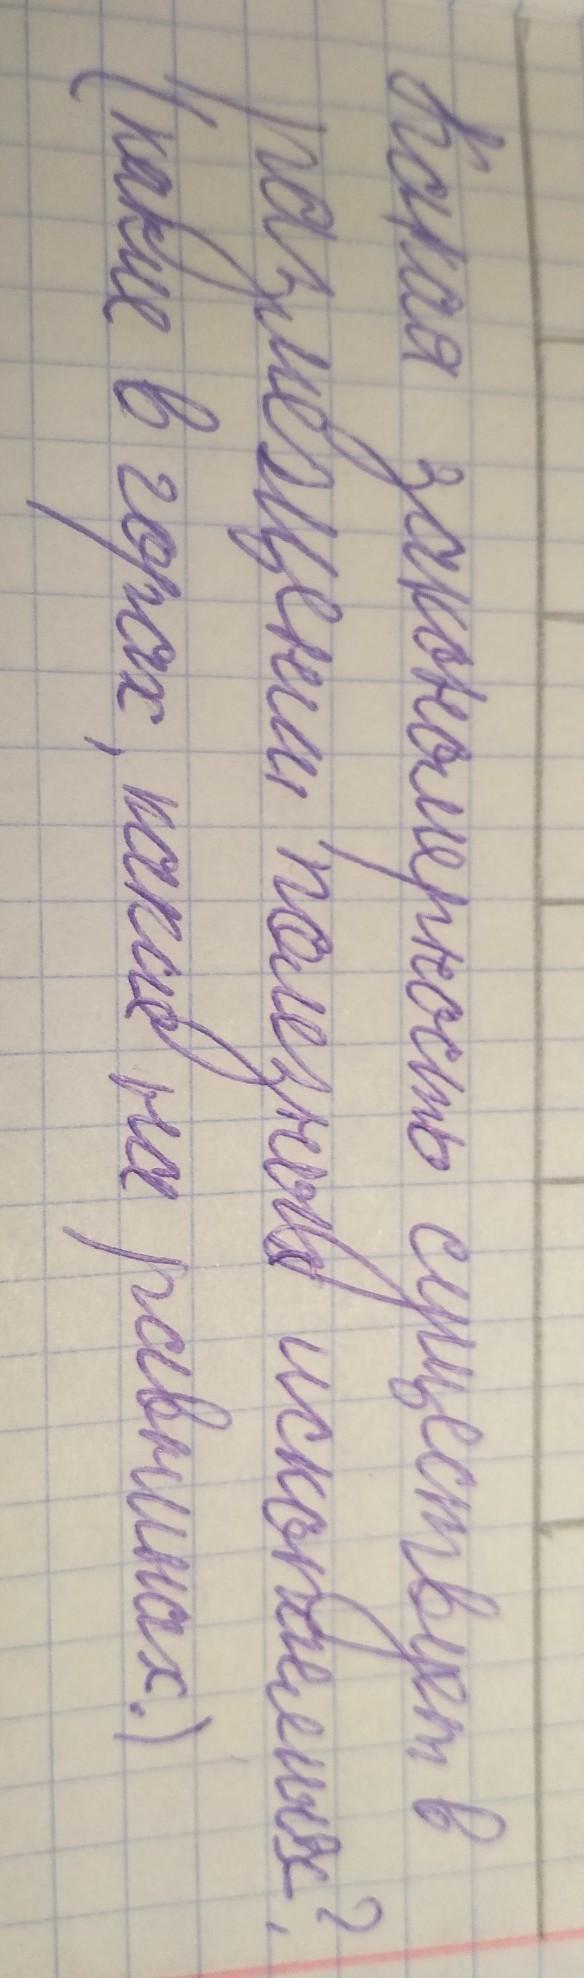 Какая закономерность существует в
размещении полезных ископаемых?
(какие в горах, какие на равнинах.)